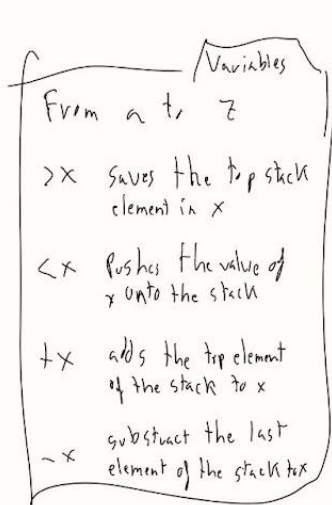 Variables
From a to z
>x saves the top stack
element in x
<x Pushes the value of
x onto the stack
+x adds the top element
of the stack to x
-x substract the last
element of the stack to x